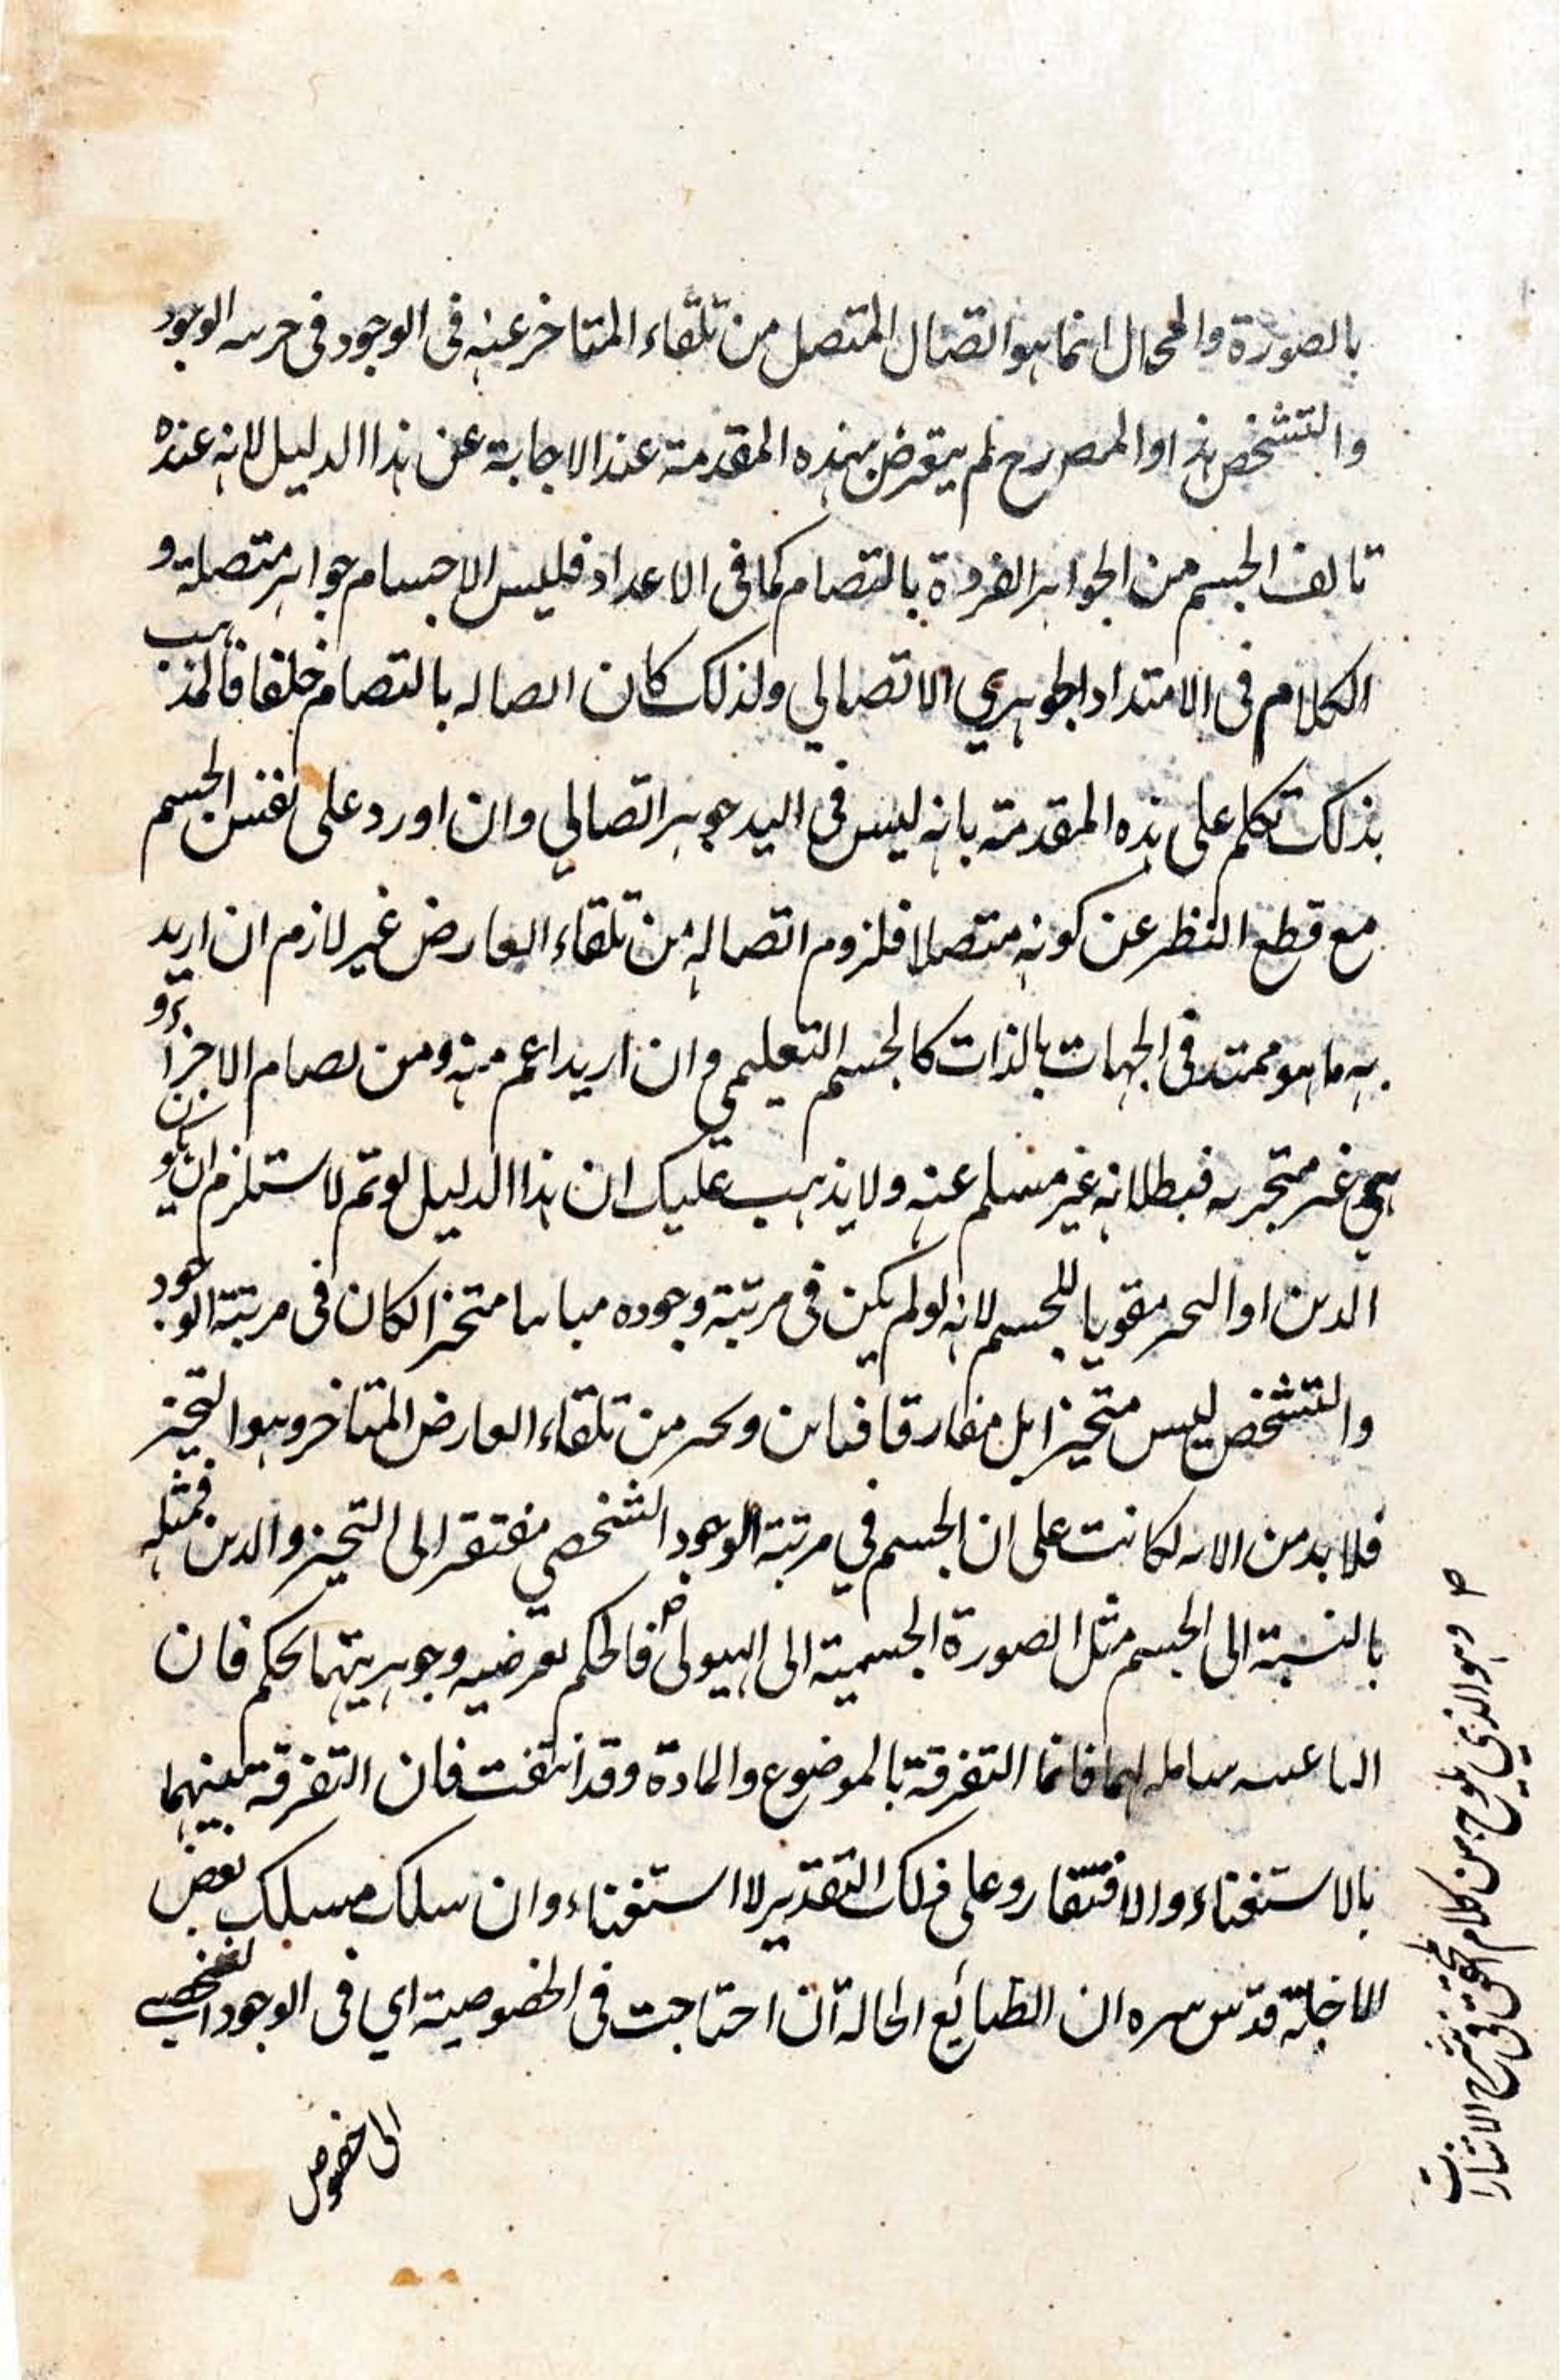 بالصورة والمحال انما هو اتصال المتصل من تلقاء المتاخر عنه فى الوجود فى الوجود
والتشخص هذا والمص رح لم يتعرض بهذه المقدمة عند الاجابة عن هذا الدليل لانه عنده
تالف الجسم من الجواهر الفردة بالتضام كما فى الاعداد فليس الاجسام جواهر متصلة و
الكلام فى الامتداد الجوهري الاتصالي ولذلك كان اتصاله بالتضام خلفا فالمذهب
بذلك تكلم على هذه المقدمة بانه ليس فى اليد جوهر اتصالي وان اورد على نفس الجسم
مع قطع النظر عن كونه متصلا فلزوم اتصاله من تلقاء العارض غير لازم ان اريد
به ما هو ممتد فى الجهات بالذات كالجسم التعليمي وان اريد اعم منه ومن تضام الاجزاء و
هي غير متجزيه فبطلانه غير مسلم عنه ولا يذهب عليك ان هذا الدليل لو تم لاستلزم ان يكون
الاين او التحيز مقويا للجسم لانه لو لم يكن فى مرتبة وجوده متحيزا لكان فى مرتبة الوجود
والتشخص ليس متحيزا بل مفارقا من تلقاء العارض المتاخر وهو التحيز
فلا بد من على ان الجسم في مرتبة الوجود الشخصي مفتقر الى التحيز والاين فمثله
بالنسبة الى الجسم مثل الصورة الجسمية الى الهيولى فالحكم بعرضيه وجوهريتهما تحكم فان
لهما فانما التفرقة بالموضوع والمادة وقد انتفت فان التفرقة بينهما
بالاستغناء والافتقار وعلى ذلك التقدير لا استغناء وان سلك مسلك بعض
الاجلة قدس سره ان الطبائع الحالة ان احتاجت فى الخصوصية اي فى الوجود الشخصي
الى خصوص
وهو الذي يلوح من كلام المحقق فى شرح الاشارات